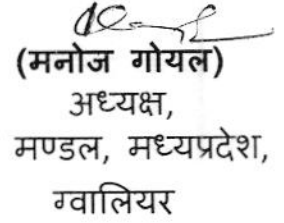 (मनोज गोयल)
अध्यक्ष,
मण्डल, मध्यप्रदेश,
ग्वालियर